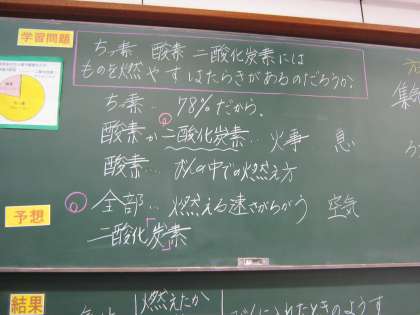 学習問題
ちっ素 酸素 二酸化炭素には
ものを燃やすはたらきがあるのだろうか?
ちっ素… 78%だから。
酸素か二酸化炭素… 火事 息
酸素… びんの中での燃え方
予想
全部… 燃える速さがちがう 空気
二酸化「炭素」
結果
燃えたか
びんに入れたときのようす